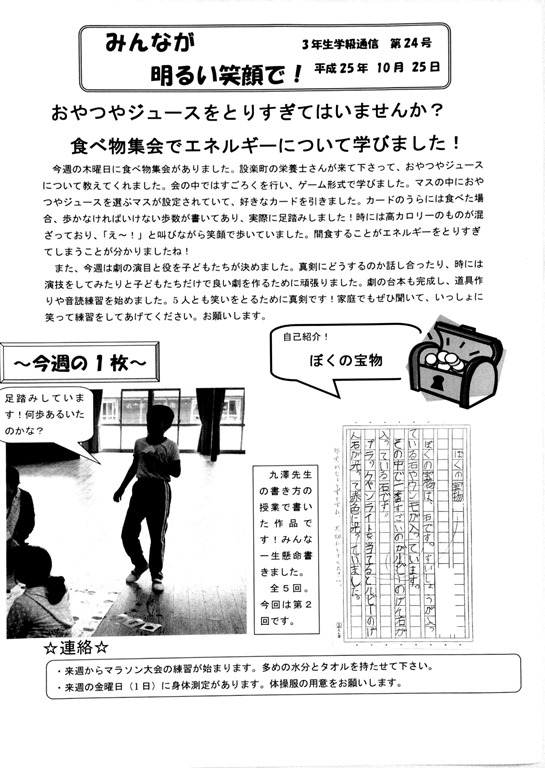 みんなが
明るい笑顔で！
3年生学級通信　第24号
平成25年　10月　25日
おやつやジュースをとりすぎてはいませんか？
食べ物集会でエネルギーについて学びました！
今週の木曜日に食べ物集会がありました。設楽町の栄養士さんが来て下さって、おやつやジュース
について教えてくれました。会の中ではすごろくを行い、ゲーム形式で学びました。マスの中におや
つやジュースを選ぶマスが設定されていて、好きなカードを引きました。カードのうらには食べた場
合、歩かなければいけない歩数が書いてあり、実際に足踏みしました！時には高カロリーのものが混
ざっており、「え～！」と叫びながら笑顔で歩いていました。間食することがエネルギーをとりすぎ
てしまうことが分かりましたね！
また、今週は劇の演目と役を子どもたちが決めました。真剣にどうするのか話し合ったり、時には
演技をしてみたりと子どもたちだけで良い劇を作るために頑張りました。劇の台本も完成し、道具作
りや音読練習を始めました。5人とも笑いをとるために真剣です！家庭でもぜひ聞いて、いっしょに
笑って練習をしてあげてください。お願いします。
～今週の1枚～
足踏みしていま
す！何歩あるいた
のかな？
自己紹介！
ぼくの宝物
九澤先生
の書き方の
授業で書い
た作品で
す！みんな
一生懸命書
きました。
全5回。
今回は第2
回です。
ぼくの宝物
ぼくの宝物は、石です。すいしょうが入っ
ている石やウンモが入っています。
その中で一番すごいのがルビーのげん石が
入っている石です。
ブラックやンライトを当てるとルビーのげ
ん石が光って赤色に光っていました。
☆連絡☆
・来週からマラソン大会の練習が始まります。多めの水分とタオルを持たせて下さい。
・来週の金曜日（1日）に身体測定があります。体操服の用意をお願いします。